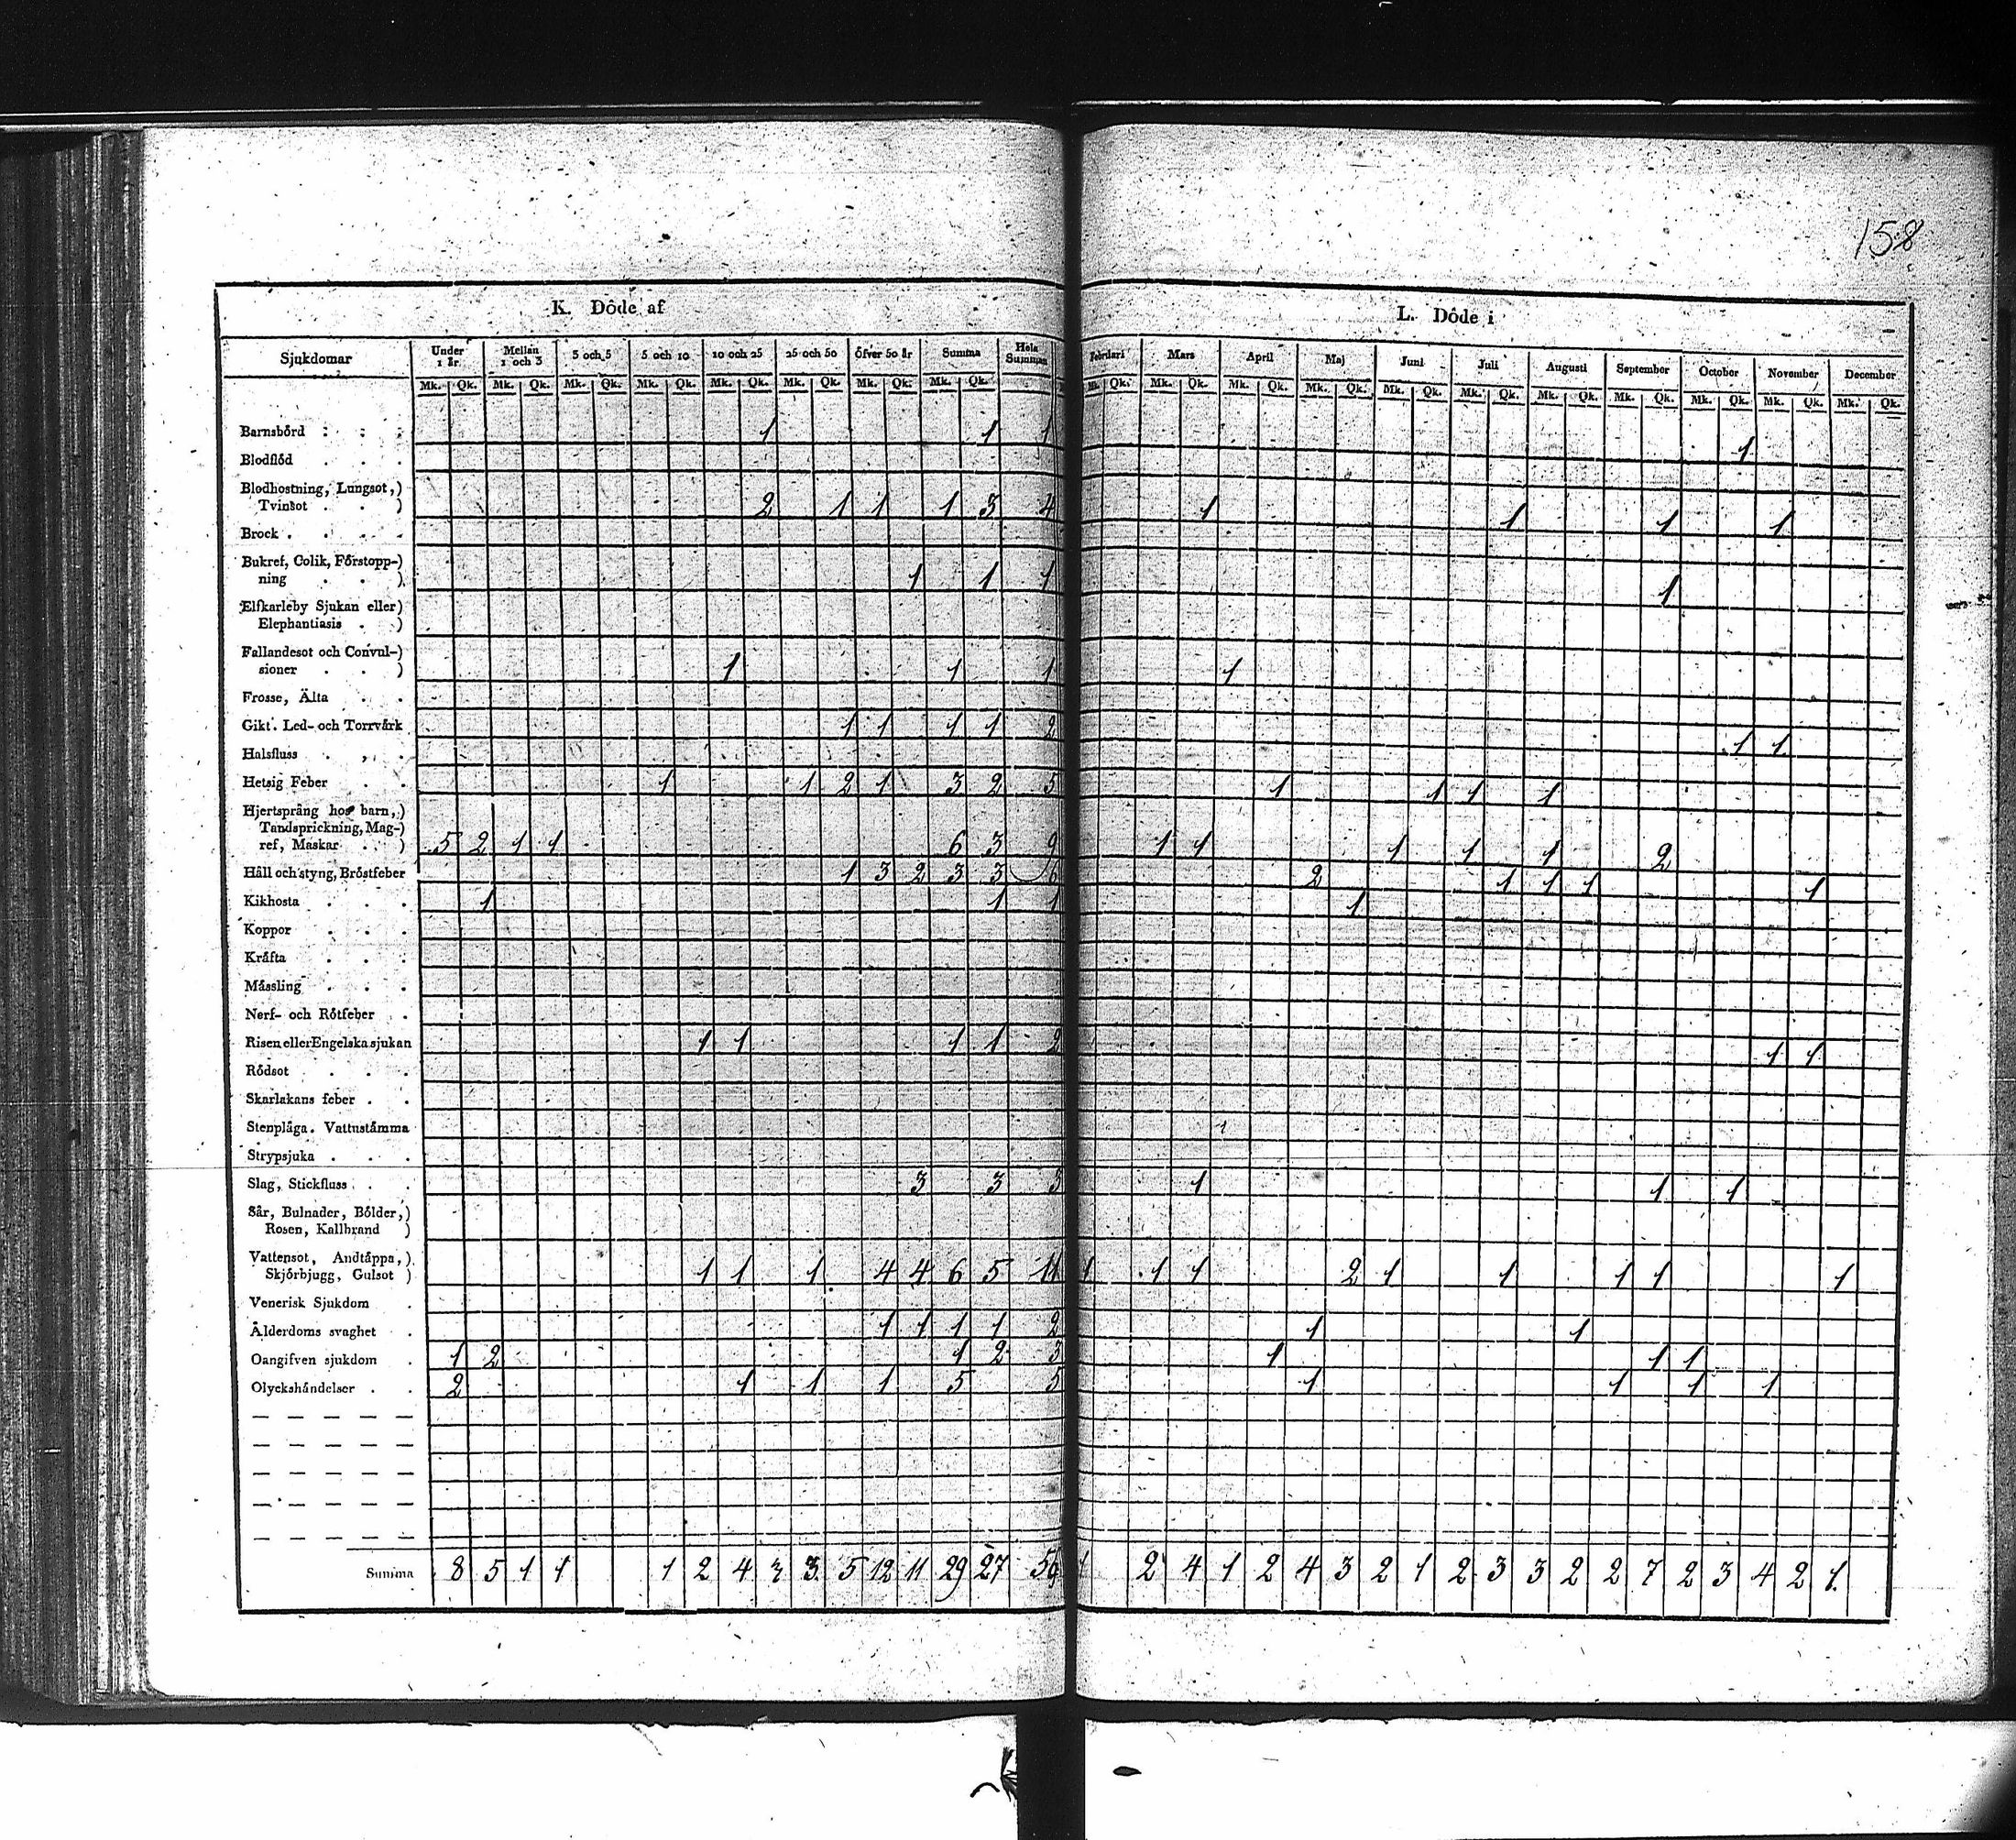 158
K. Döde af
L. Döde i
Sjukdomar Under 1 år. Mellan 1 och 3 3 och 5 5 och 10 10 och 25 25 och 50 öfver 50 år Summa Hela Summan Februari Mars April Maj Juni Juli Augusti September October November December
Mk. Qk. Mk. Qk. Mk. Qk. Mk. Qk. Mk. Qk. Mk. Qk. Mk. Qk. Mk. Qk. Mk. Qk. Mk. Qk. Mk. Qk. Mk. Qk. Mk. Qk. Mk. Qk. Mk. Qk. Mk. Qk. Mk. Qk. Mk. Qk. Mk. Qk.
Barnsbörd 1 1 1 1
Blodflöd
Blodhostning, Lungsot,)
Tvinsot ) 2 1 1 1 3 4 1 1 1 1
Brock
Bukref, Colik, Förstopp-)
ning ) 1 1 1 1
Elfkarleby Sjukan eller)
Elephantiasis )
Fallandesot och Convul-)
sioner ) 1 1 1 1
Frosse, Älta
Gikt. Led- och Torrvärk 1 1 1 1 2 1 1
Halsfluss
Hetsig Feber 1 1 2 1 3 2 5 1 1 1 1
Hjertsprång hos barn,)
Tandsprickning, Mag-)
ref, Maskar ) 5 2 1 1 6 3 9 1 1 1 1 1 2
Håll och styng, Bröstfeber 1 3 2 3 3 6 2 1 1 1 1
Kikhosta 1 1 1 1
Koppor
Kräfta
Mässling
Nerf- och Rötfeber
Risen eller Engelska sjukan 1 1 1 1 2 1 1
Rödsot
Skarlakans feber
Stenplåga. Vattustämma
Strypsjuka
Slag, Stickfluss 3 3 3 1 1 1
Sår, Bulnader, Bölder,)
Rosen, Kallbrand )
Vattensot, Andtäppa,)
Skjörbjugg, Gulsot ) 1 1 1 4 4 6 5 11 1 1 1 2 1 1 1 1 1
Venerisk Sjukdom
Ålderdoms svaghet 1 1 1 1 2 1 1
Oangifven sjukdom 1 2 1 2 3 1 1 1
Olyckshändelser 2 1 1 1 5 5 1 1 1 1
Summa 8 5 1 1 1 2 4 3 3 5 12 11 29 27 56 1 2 4 1 2 4 3 2 1 2 3 3 2 2 7 2 3 4 2 1